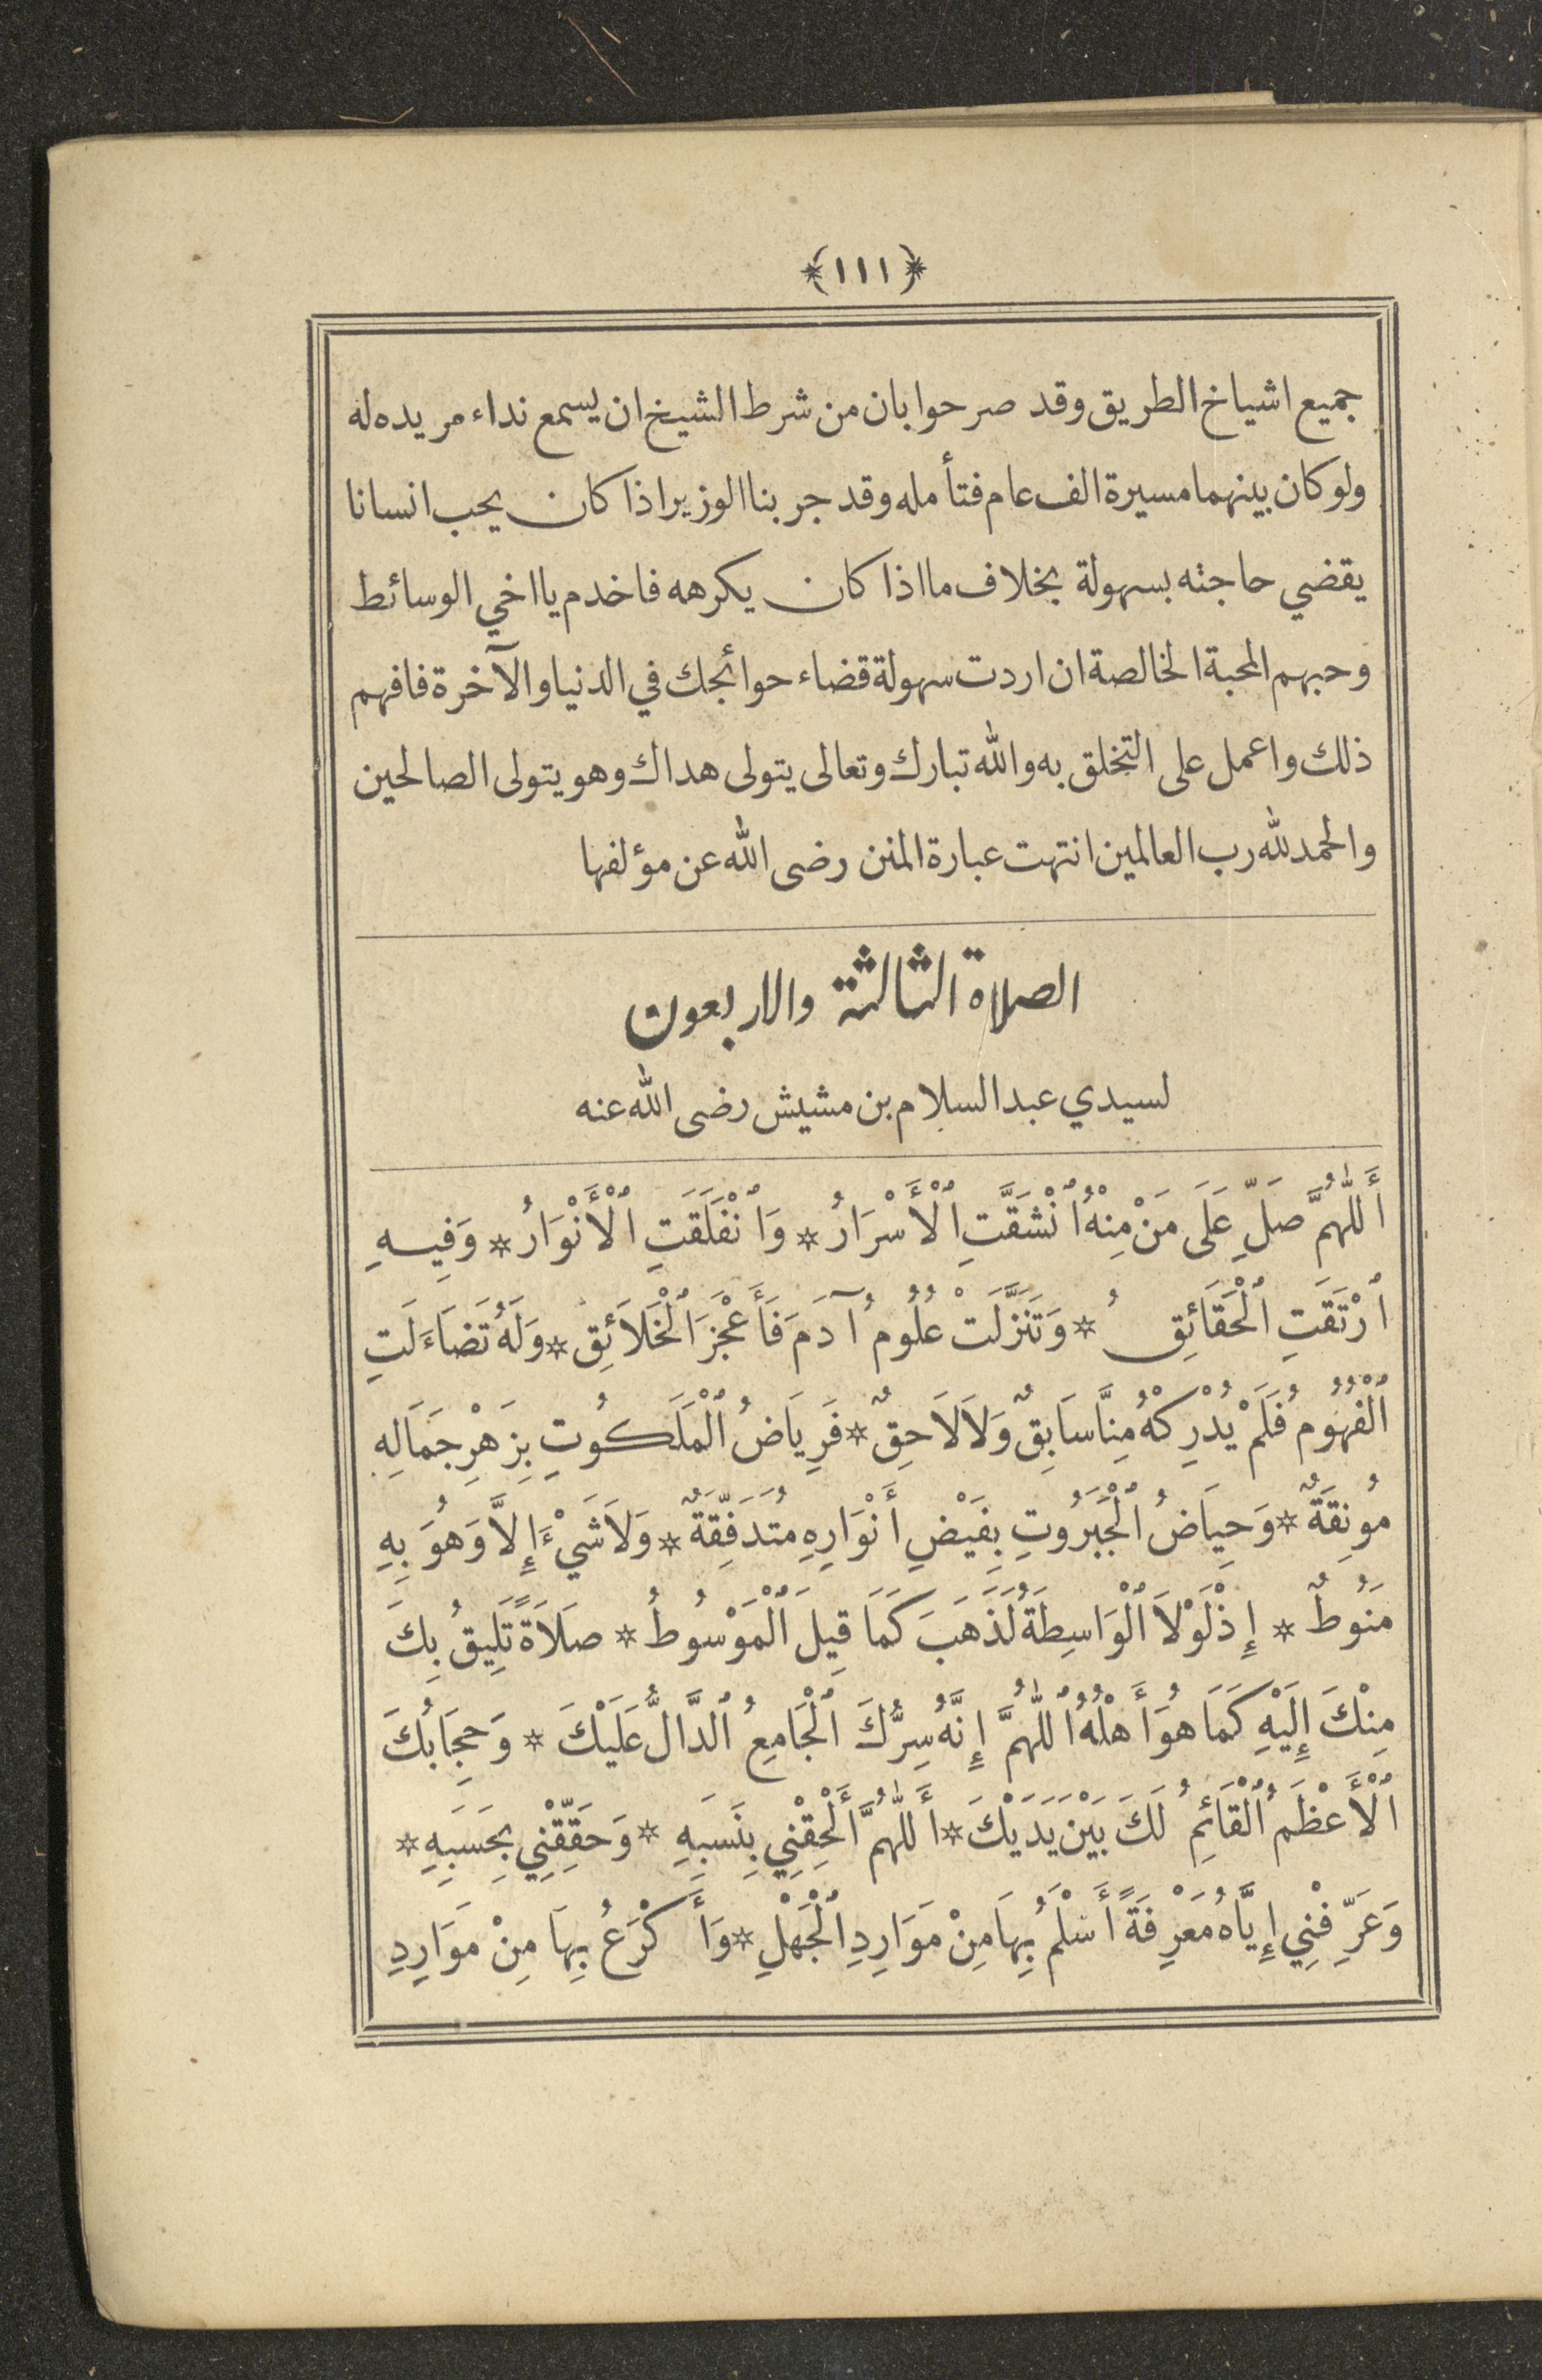 ﴿١١١﴾
جميع اشياخ الطريق وقد صرحوا بان من شرط الشيخ ان يسمع نداء مريده له
ولو كان بينهما مسيرة الف عام فتأمله وقد جربنا الوزير اذا كان يحب انسانا
يقضي حاجته بسهولة بخلاف ما اذا كان يكرهه فاخدم يا اخي الوسائط
وحبهم المحبة الخالصة ان اردت سهولة قضاء حوائجك في الدنيا والآخرة فافهم
ذلك واعمل على التخلق به والله تبارك وتعالى يتولى هداك وهو يتولى الصالحين
والحمد لله رب العالمين انتهت عبارة المنن رضى الله عن مؤلفها
الصلاة الثالثة والاربعون
لسيدي عبد السلام بن مشيش رضى الله عنه
أَللّٰهُمَّ صَلِّ عَلَى مَنْ مِنْهُ ٱنْشَقَّتِ ٱلْأَسْرَارُ * وَٱنْفَلَقَتِ ٱلْأَنْوَارُ * وَفِيهِ
ٱرْتَقَتِ ٱلْحَقَائِقُ * وَتَنَزَّلَتْ عُلُومُ آدَمَ فَأَعْجَزَ ٱلْخَلاَئِقَ * وَلَهُ تَضَاءَلَتِ
ٱلْفُهُومُ فَلَمْ يُدْرِكْهُ مِنَّا سَابِقٌ وَلاَ لاَحِقٌ * فَرِيَاضُ ٱلْمَلَكُوتِ بِزَهْرِ جَمَالِهِ
مُونِقَةٌ * وَحِيَاضُ ٱلْجَبَرُوتِ بِفَيْضِ أَنْوَارِهِ مُتَدَفِّقَةٌ * وَلاَ شَيْءَ إِلاَّ وَهُوَ بِهِ
مَنُوطٌ * إِذْ لَوْلاَ ٱلْوَاسِطَةُ لَذَهَبَ كَمَا قِيلَ ٱلْمَوْسُوطُ * صَلاَةً تَلِيقُ بِكَ
مِنْكَ إِلَيْهِ كَمَا هُوَ أَهْلُهُ ٱللّٰهُمَّ إِنَّهُ سِرُّكَ ٱلْجَامِعُ ٱلدَّالُّ عَلَيْكَ * وَحِجَابُكَ
ٱلْأَعْظَمُ ٱلْقَائِمُ لَكَ بَيْنَ يَدَيْكَ * أَللّٰهُمَّ أَلْحِقْنِي بِنَسَبِهِ * وَحَقِّقْنِي بِحَسَبِهِ *
وَعَرِّفْنِي إِيَّاهُ مَعْرِفَةً أَسْلَمُ بِهَا مِنْ مَوَارِدِ ٱلْجَهْلِ * وَأَكْرَعُ بِهَا مِنْ مَوَارِدِ